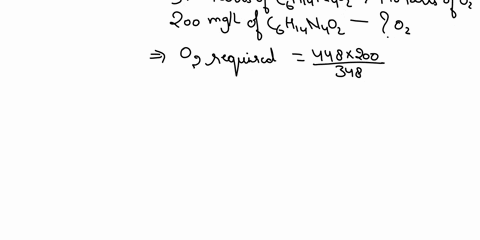 of C6H14N4O2 of O2
200 mg/L of C6H14N4O2 — ? O2
⇒ O2 required = 448×200
348